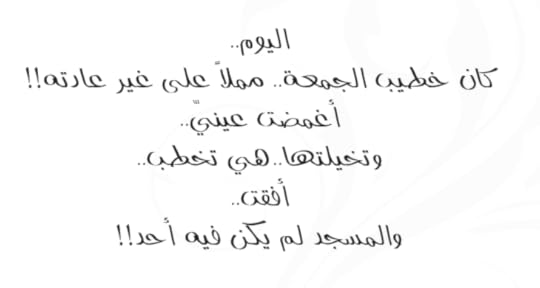 اليوم..
كان خطيب الجمعة.. مملاً على غير عادته!!
أغمضت عينيّ..
وتخيلتها..هي تخطب..
أفقت..
والمسجد لم يكن فيه أحد!!